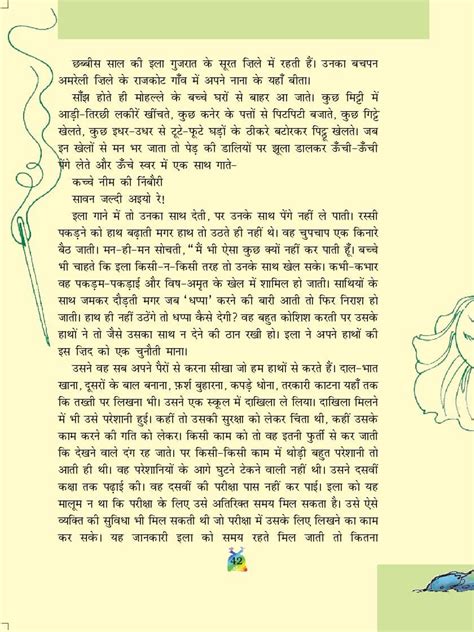 छब्बीस साल की इला गुजरात के सूरत ज़िले में रहती हैं। उनका बचपन
अमरेली ज़िले के राजकोट गाँव में अपने नाना के यहाँ बीता।
साँझ होते ही मोहल्ले के बच्चे घरों से बाहर आ जाते। कुछ मिट्टी में
आड़ी-तिरछी लकीरें खींचते, कुछ कनेर के पत्तों से पिटपिटी बजाते, कुछ गिट्टे
खेलते, कुछ इधर-उधर से टूटे-फूटे घड़ों के ठीकरे बटोरकर पिट्ठू खेलते। जब
इन खेलों से मन भर जाता तो पेड़ की डालियों पर झूला डालकर ऊँची-ऊँची
पेंगे लेते और ऊँचे स्वर में एक साथ गाते-
कच्चे नीम की निंबौरी
सावन जल्दी अइयो रे!
इला गाने में तो उनका साथ देती, पर उनके साथ पेंगे नहीं ले पाती। रस्सी
पकड़ने को हाथ बढ़ाती मगर हाथ तो उठते ही नहीं थे। वह चुपचाप एक किनारे
बैठ जाती। मन-ही-मन सोचती, “मैं भी ऐसा कुछ क्यों नहीं कर पाती हूँ। बच्चे
भी चाहते कि इला किसी-न-किसी तरह तो उनके साथ खेल सके। कभी-कभार
वह पकड़म-पकड़ाई और विष-अमृत के खेल में शामिल हो जाती। साथियों के
साथ जमकर दौड़ती मगर जब ‘धप्पा’ करने की बारी आती तो फिर निराश हो
जाती। हाथ ही नहीं उठेंगे तो धप्पा कैसे देगी? वह बहुत कोशिश करती पर उसके
हाथों ने तो जैसे उसका साथ न देने की ठान रखी हो। इला ने अपने हाथों की
इस ज़िद को एक चुनौती माना।
उसने वह सब अपने पैरों से करना सीखा जो हम हाथों से करते हैं। दाल-भात
खाना, दूसरों के बाल बनाना, फ़र्श बुहारना, कपड़े धोना, तरकारी काटना यहाँ तक
कि तख्ती पर लिखना भी। उसने एक स्कूल में दाखिला ले लिया। दाखिला मिलने
में भी उसे परेशानी हुई। कहीं तो उसकी सुरक्षा को लेकर चिंता थी, कहीं उसके
काम करने की गति को लेकर। किसी काम को तो वह इतनी फुर्ती से कर जाती
कि देखने वाले दंग रह जाते। पर किसी-किसी काम में थोड़ी बहुत परेशानी तो
आती ही थी। वह परेशानियों के आगे घुटने टेकने वाली नहीं थी। उसने दसवीं
कक्षा तक पढ़ाई की। वह दसवीं की परीक्षा पास नहीं कर पाई। इला को यह
मालूम न था कि परीक्षा के लिए उसे अतिरिक्त समय मिल सकता है। उसे ऐसे
व्यक्ति की सुविधा भी मिल सकती थी जो परीक्षा में उसके लिए लिखने का काम
कर सके। यह जानकारी इला को समय रहते मिल जाती तो कितना
42